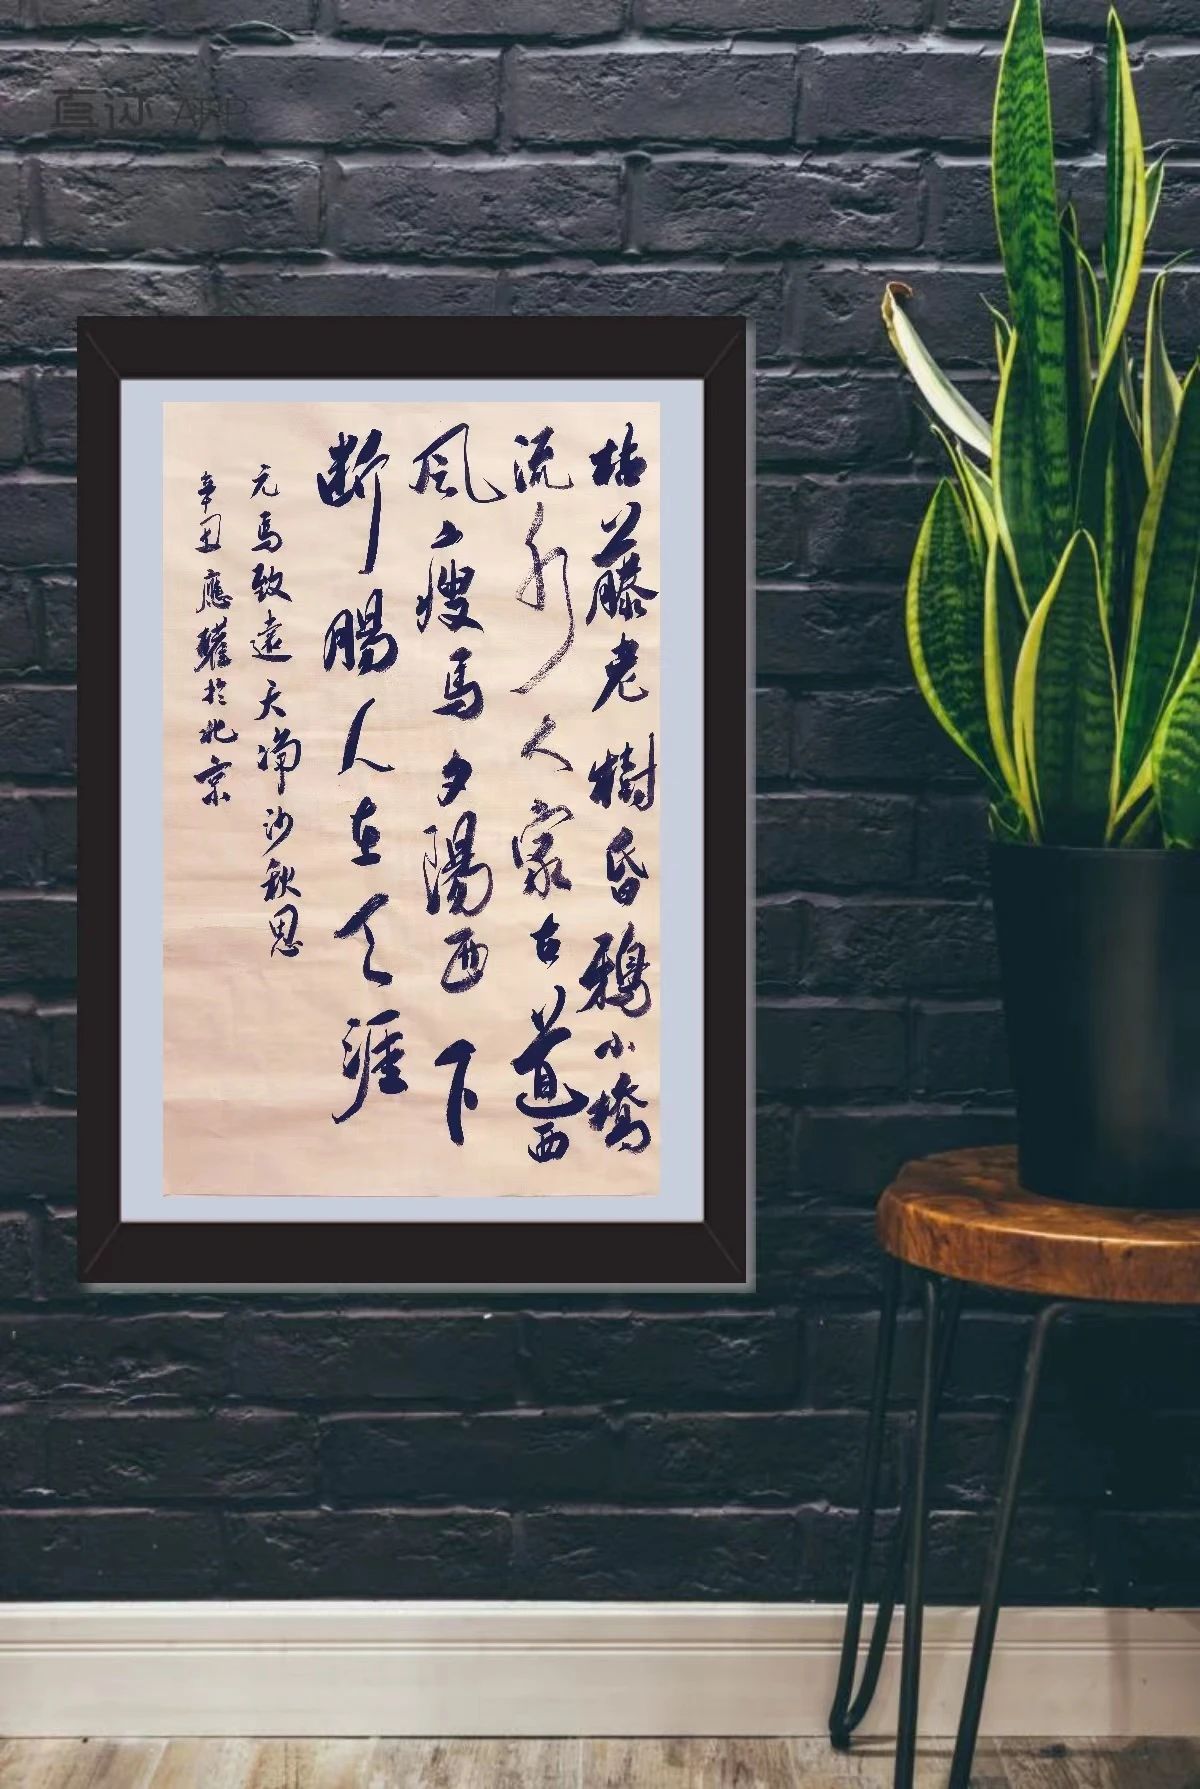 枯藤老樹昏鴉小橋
流水人家古道西
风瘦馬夕陽西下
断腸人在天涯
元馬致遠天净沙秋思
辛丑應驩於北京
直迹 APP